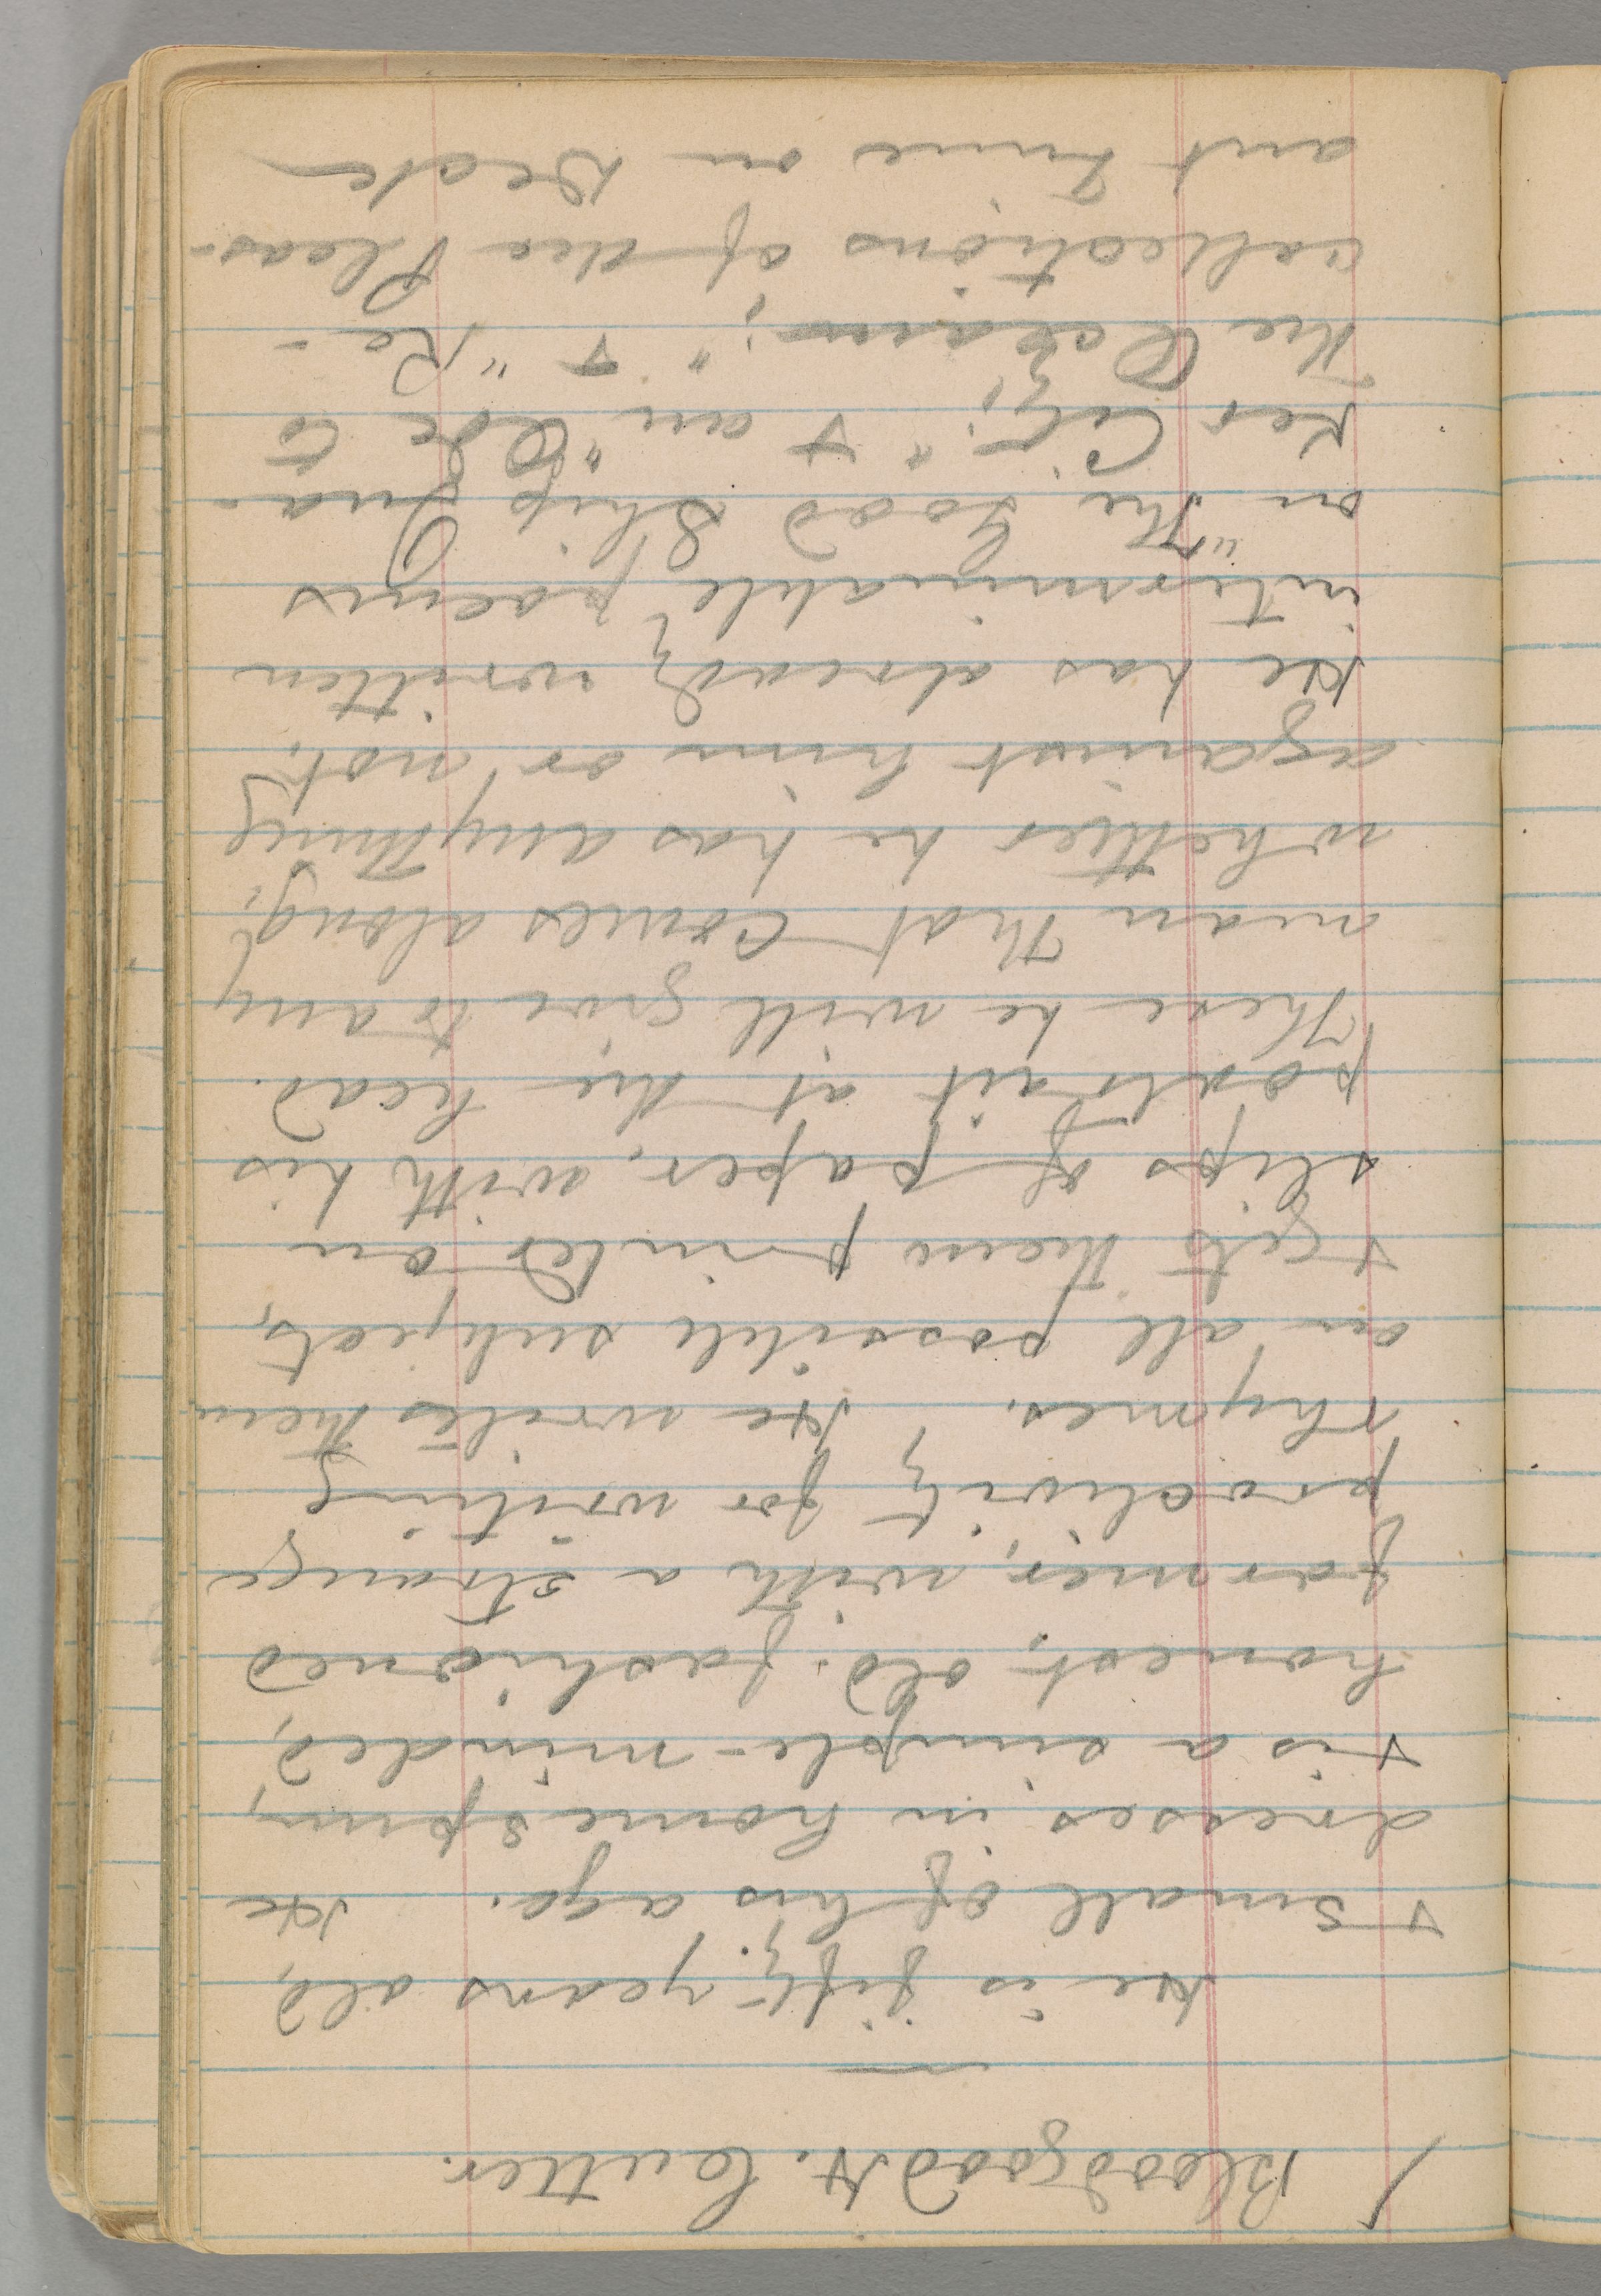 / Bloodgood H. Cutter.
He is fifty years old,
+ small of his age. He
dresses in homespun,
+ is a simple-minded,
honest, old-fashioned
farmer, with a strange
proclivity for writing
rhymes. He writes them
on all possible subjects,
+ gets them printed on
slips of paper, with his
portrait at the head.
These he will give to any
man that comes along,
whether he has anything
against him or not.
He has already written
interminable poems
on "The Good Ship Qua-
ker City;" + an "Ode to
the Ocean;" + "Re-
collections of the Pleas-
ant Time on Deck